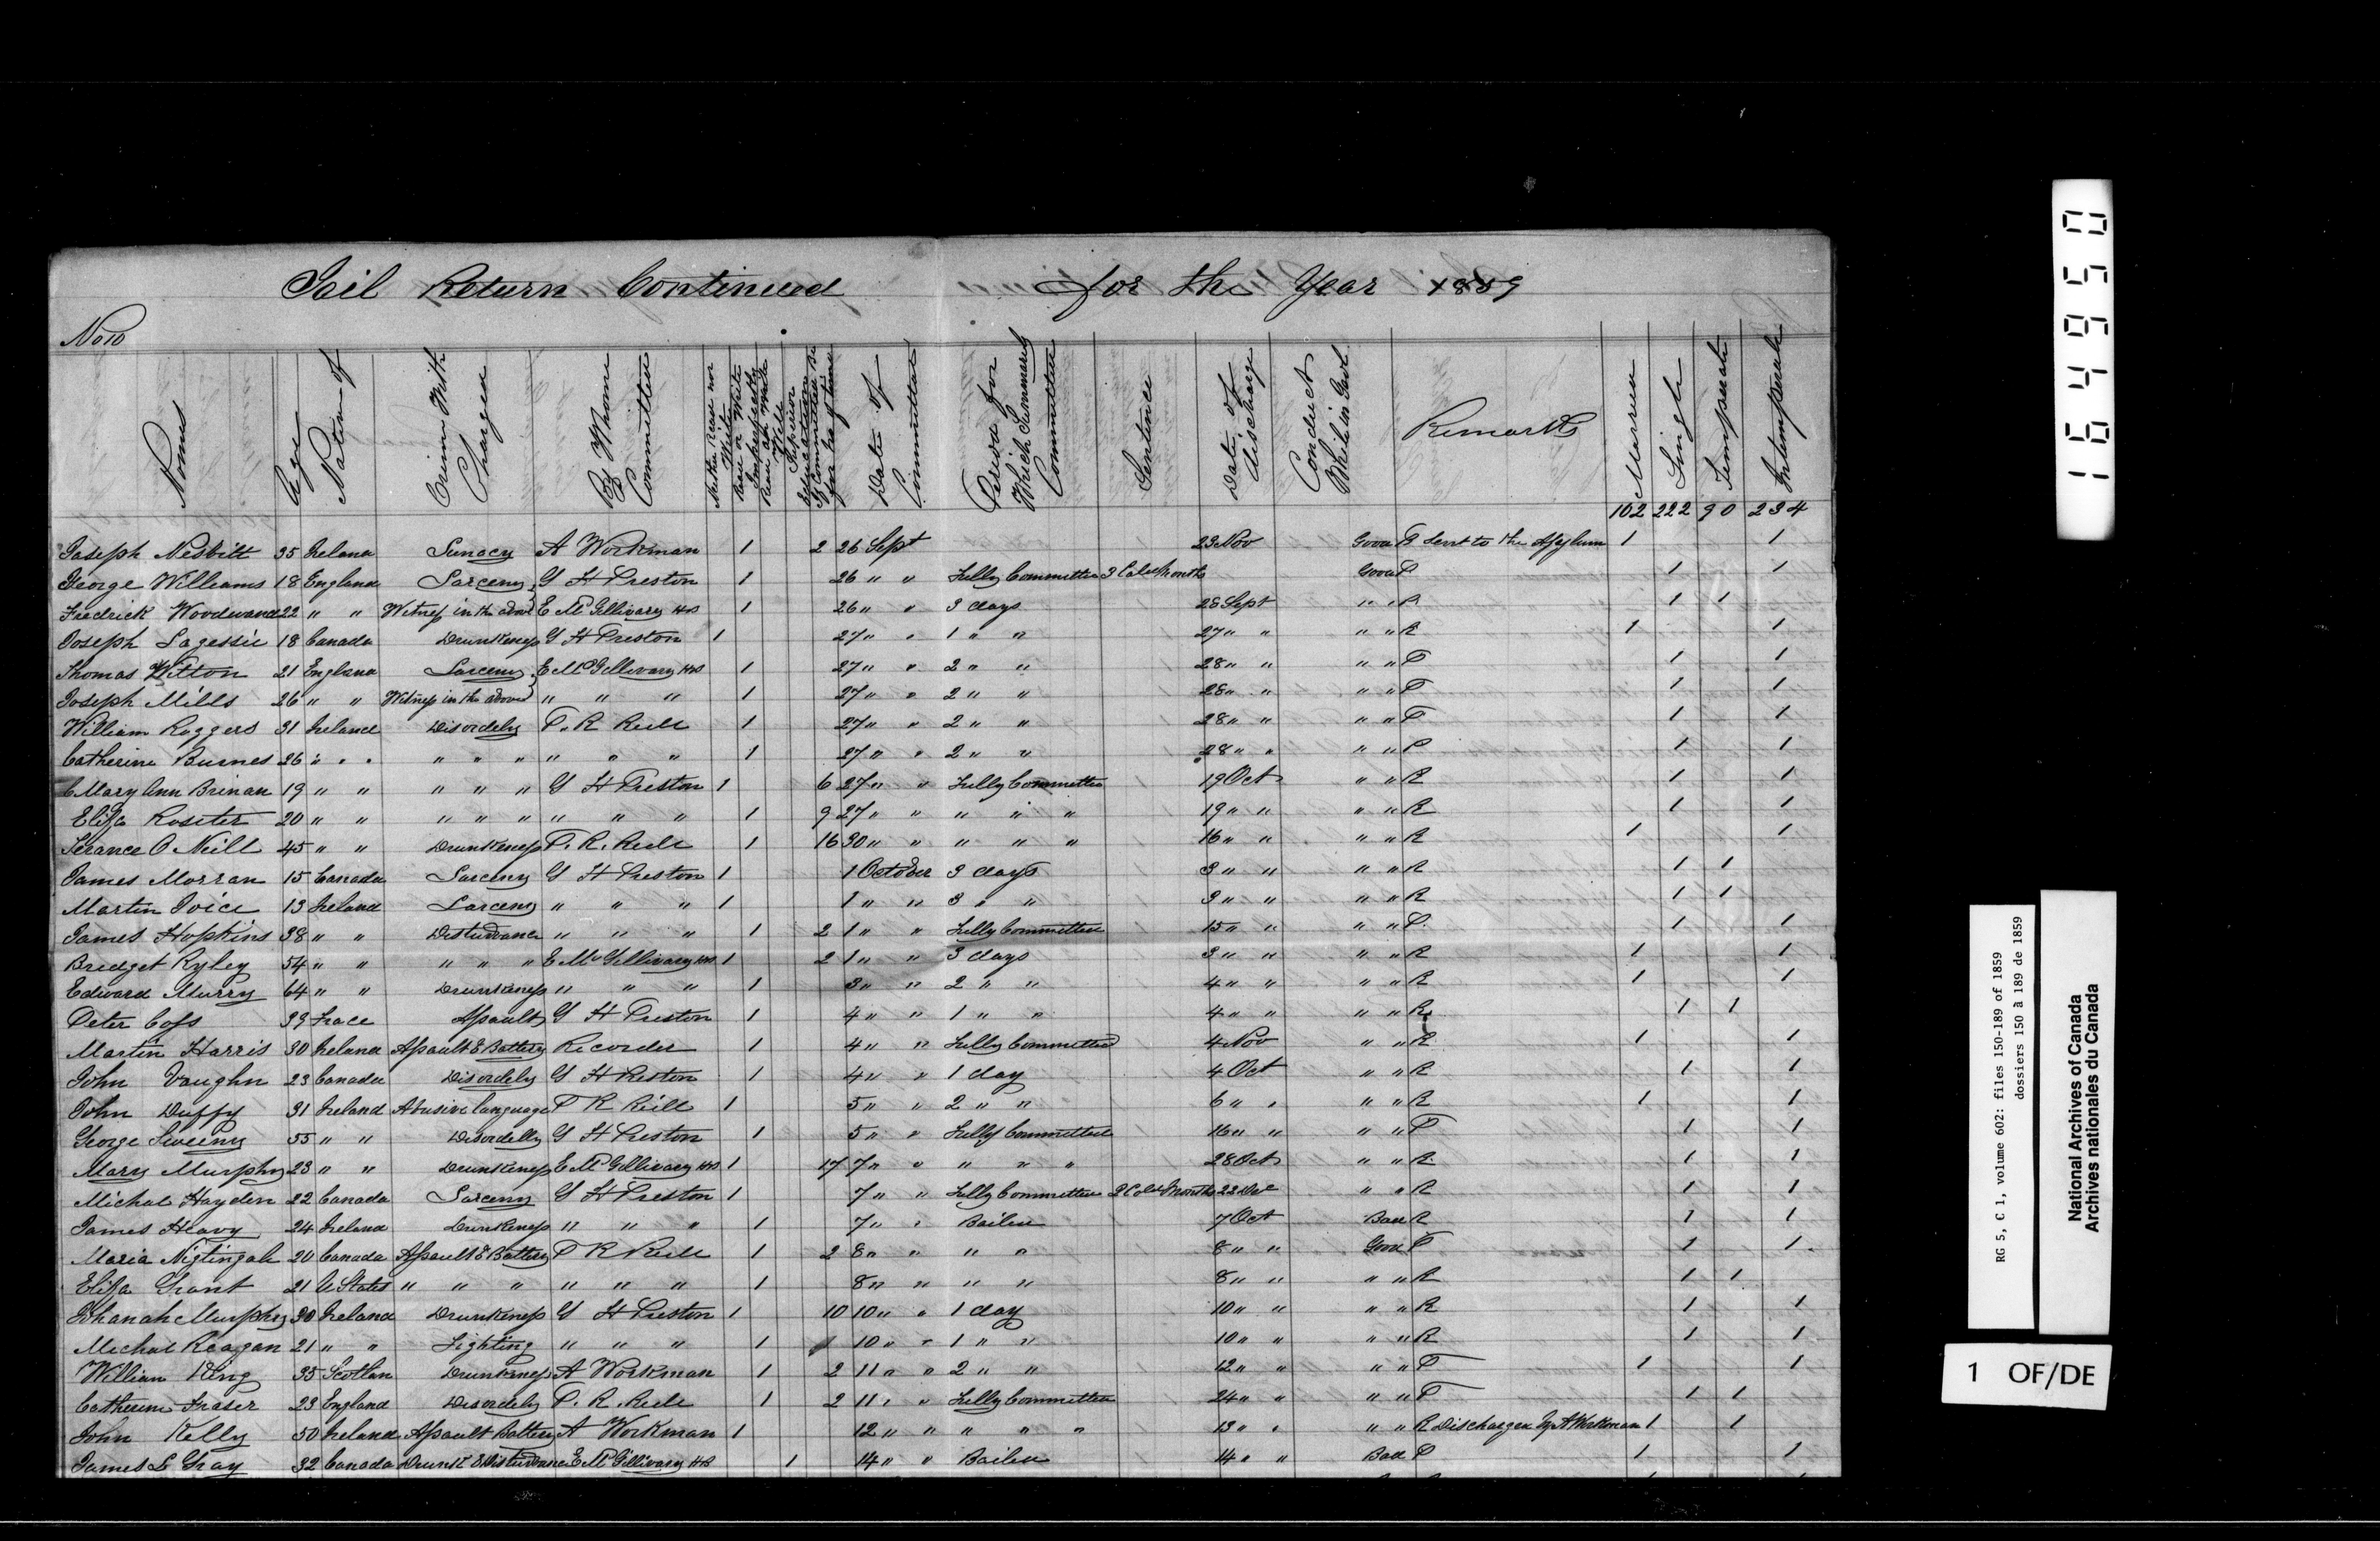 Goil Return Continued for the Year 1859
No 10
Names Age Nation of Crime With Charged By Whome Committed Neither Read nor Write Read or Write Imperfectly Read and Write Well Superior Education If Committed Before No of times Date of Committed Period for Which Summarily Committed Sentence Date of discharge Conduct While in Gaol Remarks Married Single Temperate Intemperate
102 222 90 234
Joseph Nesbitt 35 Ireland Lunacy A Workman 1 2 26 Sept 23 Nov Good P Sent to the Asylum 1 1
George Williams 18 England Larceny G H Preston 1 26 " " Fully Committed 3 Cal Months Good P 1 1
Fredrick Woodward 22 " " Witness in the above E McGillivary HS 1 26 " " 3 days 28 Sept " " R 1 1
Joseph Lagessie 18 Canada Drunkeness G H Preston 1 27 " " 1 " " 27 " " " " R 1 1
Thomas Witton 21 England Larceny E McGillivary HS 1 27 " " 2 " " 28 " " " " P 1 1
Joseph Mills 26 " " Witness in the above " " " 1 27 " " 2 " " 28 " " " " P 1 1
William Roggers 31 Ireland Disordely P. R Reill 1 27 " " 2 " " 28 " " " " P 1 1
Catherine Burnes 26 " " " " " " " " 1 27 " " 2 " " 28 " " " " P 1 1
Mary Ann Brinan 19 " " " " " G H Preston 1 6 27 " " Fully Committed 19 Oct " " R 1 1
Eliza Roseter 20 " " " " " " " " 1 9 27 " " " " " 19 " " " " R 1 1
Terance O Neill 45 " " Drunkeness P. R. Reill 1 16 30 " " " " " 16 " " " " R 1 1
James Morran 15 Canada Larceny G H Preston 1 1 October 3 days 3 " " " " R 1 1
Martin Joice 13 Ireland Larceny " " " 1 1 " " 3 " " 3 " " " " R 1 1
James Hopkins 38 " " Disturbance " " " 1 2 1 " " Fully Committed 15 " " " " P. 1 1
Bridget Ryley 54 " " " " " E McGillivary HS 1 2 1 " " 3 days 3 " " " " R 1 1
Edward Murry 64 " " Drunkeness " " " 1 3 " " 2 " " 4 " " " " R 1 1
Peter Coss 39 Frace Assault G H Preston 1 4 " " 1 " " 4 " " " " R 1 1
Martin Harris 30 Ireland Assault & Battery Recorder 1 4 " " Fully Committed 4 Nov " " R 1 1
John Vaughn 23 Canada Disordely G H Preston 1 4 " " 1 day 4 Oct " " R 1 1
John Duffy 31 Ireland Abusive language P R Reill 1 5 " " 2 " " 6 " " " " R 1 1
George Sweeny 55 " " Disordelly G H Preston 1 5 " " Fully Committed 16 " " " " P 1 1
Mary Murphy 23 " " Drunkeness E McGillivary HS 1 17 7 " " " " " 28 Oct " " R 1 1
Michal Hayden 22 Canada Larceny G H Preston 1 7 " " Fully Committed 2 Cal Months 22 Dec " " R 1 1
James Heavy 24 Ireland Drunkeness " " " 1 7 " " Bailed 7 Oct Bad R 1 1
Maria Nigtingale 20 Canada Assault & Battery P R Reill 1 2 8 " " " " 8 " " Good P 1 1
Eliza Grant 21 U States " " " " " " 1 8 " " " " 8 " " " " R 1 1
Johanah Murphy 30 Ireland Drunkeness G H Preston 1 10 10 " " 1 day 10 " " " " R 1 1
Michal Reagan 21 " " Fighting " " " 1 1 10 " " 1 " " 10 " " " " R 1 1
William King 35 Scotlan Drunkeness A Workman 1 2 11 " " 2 " " 12 " " " " P 1 1
Catherine Fraser 23 England Disordely P. R. Reill 1 2 11 " " Fully Committed 24 " " " " P 1 1
John Kelly 50 Ireland Assault Battery A Workman 1 12 " " " " " 13 " " " " R Discharged by A Workman 1 1
James L Gray 32 Canada Drunk & Disturbance E McGillivary HS 1 14 " " Bailed 14 " " Bad P 1 1
164950
RG 5, C 1, volume 602: files 150-189 of 1859
dossiers 150 à 189 de 1859
National Archives of Canada
Archives nationales du Canada
1 OF/DE